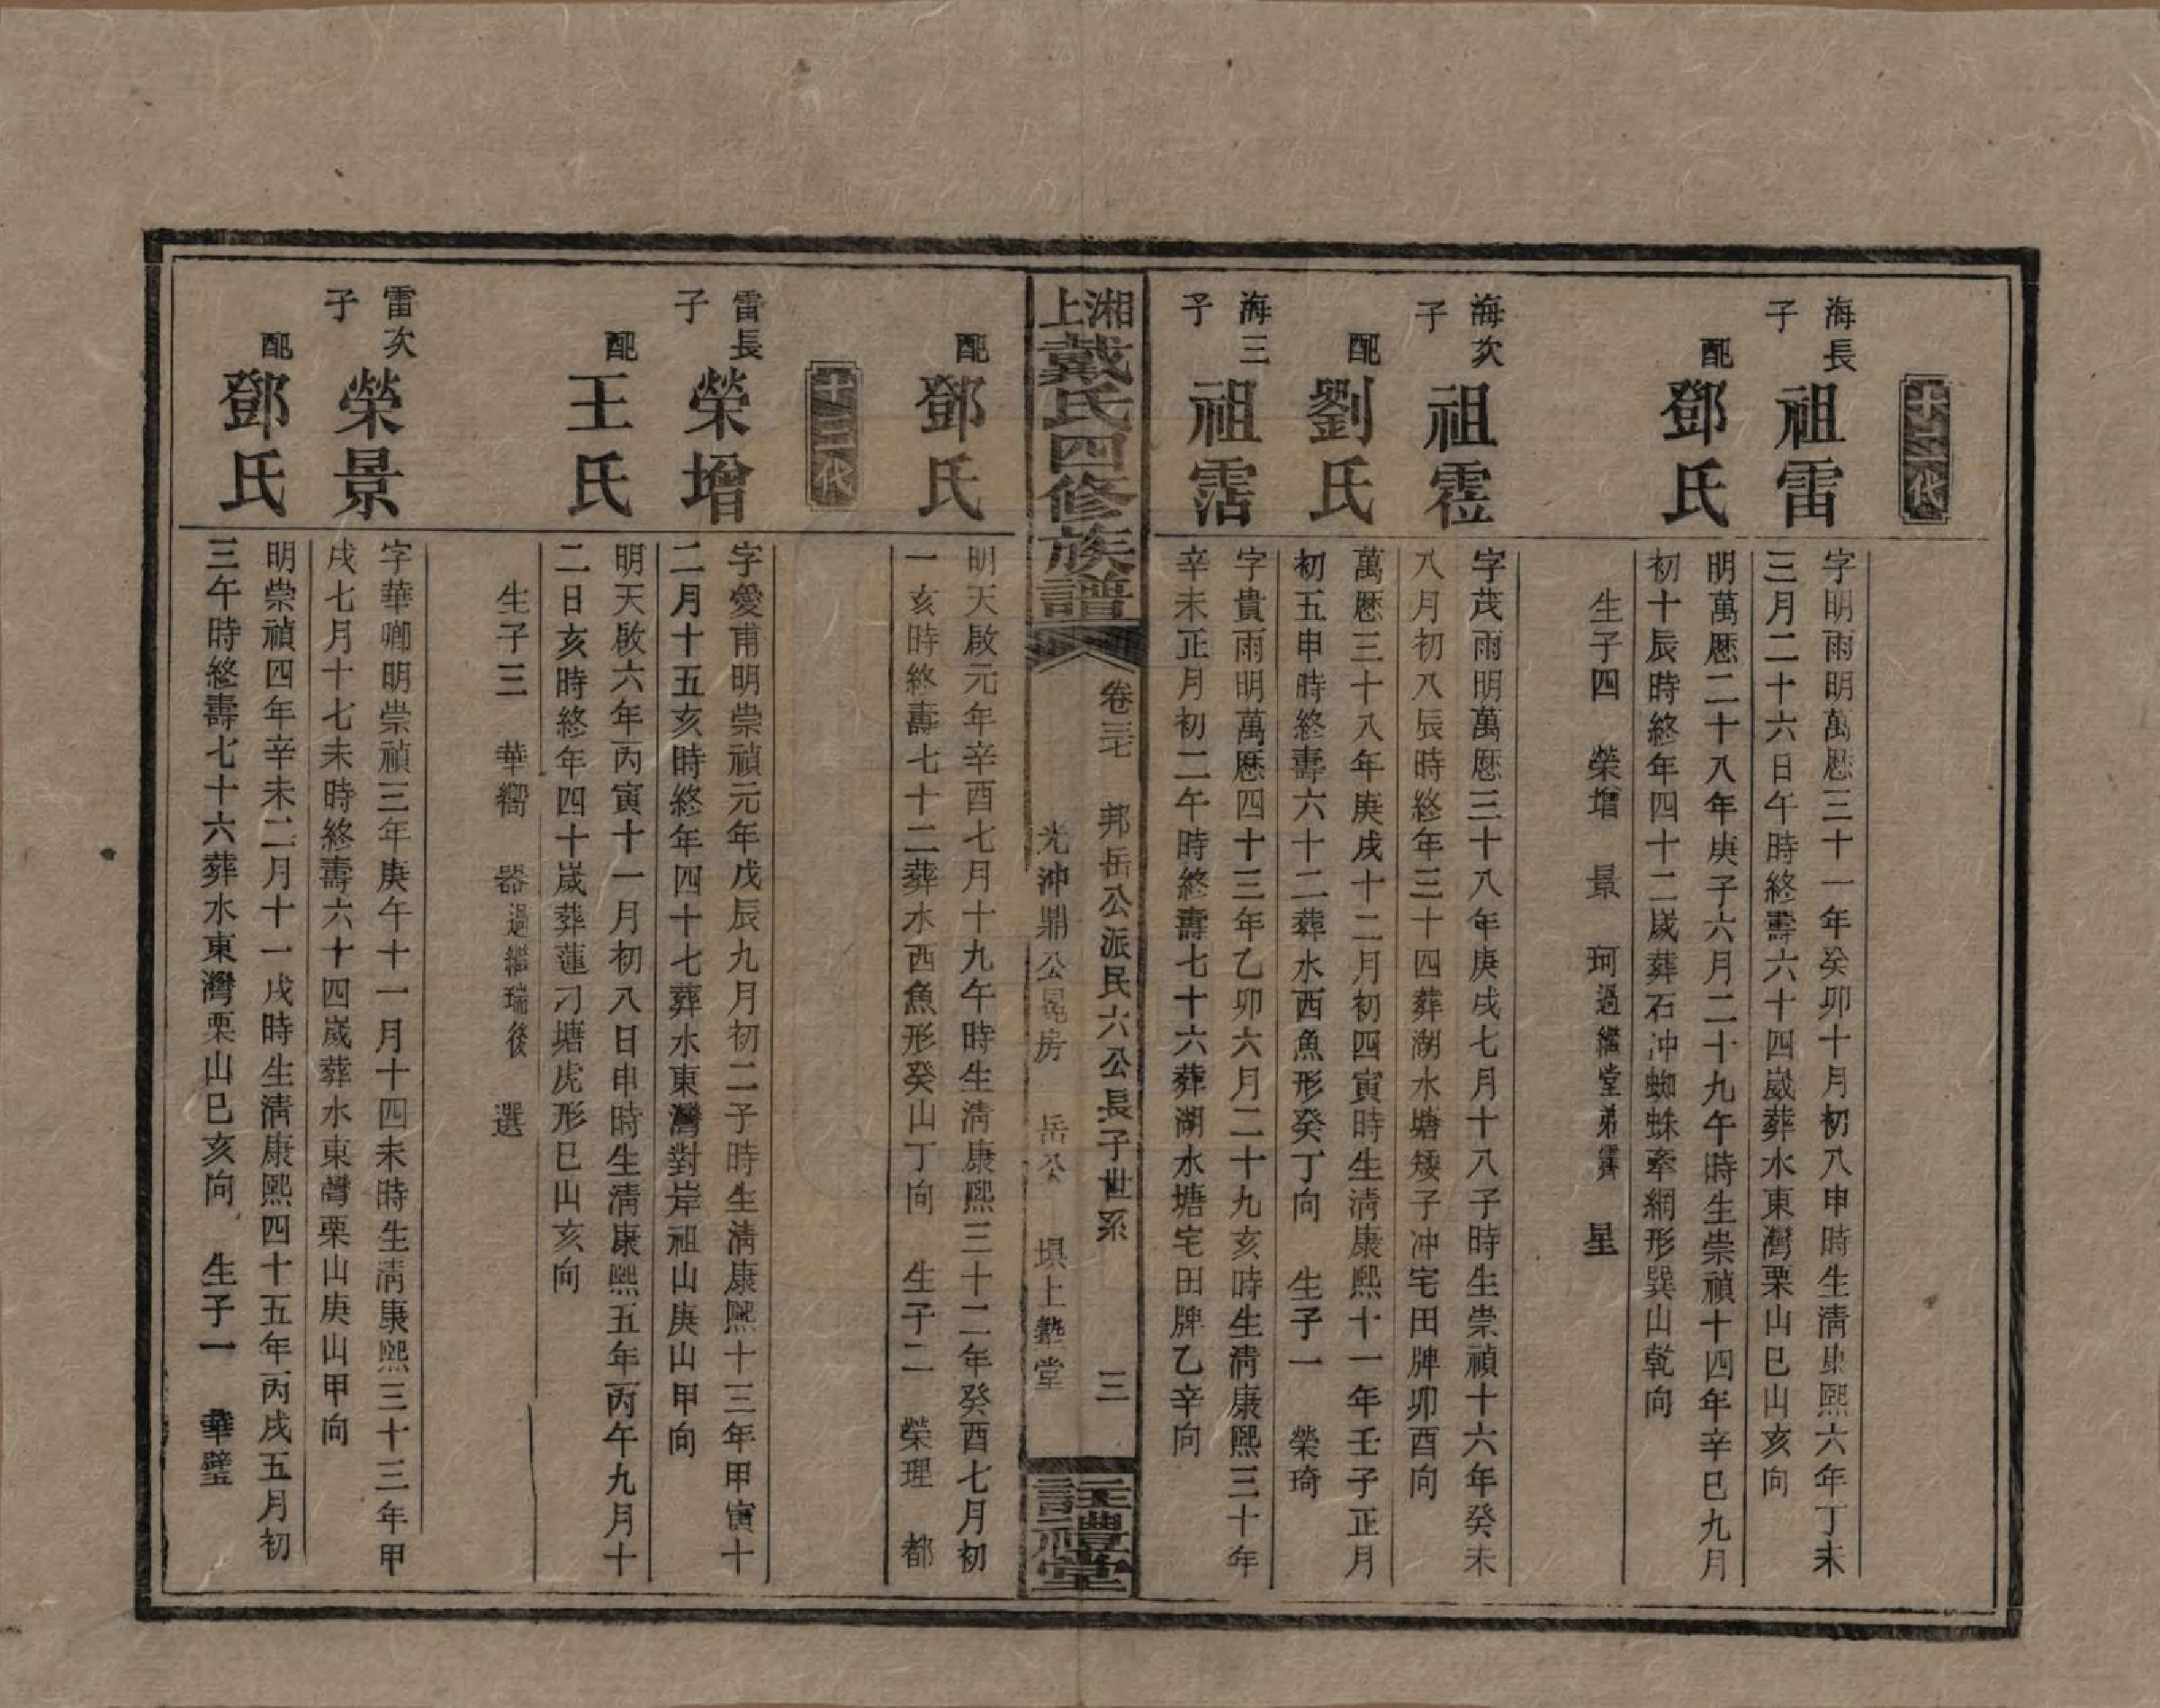 十二代
海長子
祖雷
字明雨明萬厯三十一年癸卯十月初八申時生淸康熙六年丁未
三月二十六日午時終壽六十四嵗葬水東灣栗山巳山亥向
配
鄧氏
明萬厯二十八年庚子六月二十九午時生崇禎十四年辛巳九月
初十辰時終年四十二嵗葬石冲蜘蛛牽網形巽山乾向
生子四 榮增 景 珂過繼堂弟霽 星
海次子
祖霑
字茂雨明萬厯三十八年庚戌七月十八子時生崇禎十六年癸未
八月初八辰時終年三十四葬湖水塘矮子冲宅田牌卯酉向
配
劉氏
萬厯三十八年庚戌十二月初四寅時生淸康熙十一年壬子正月
初五申時終壽六十二葬水西魚形癸丁向 生子一 榮琦
海三子
祖霑
字貴雨明萬厯四十三年乙卯六月二十九亥時生淸康熙三十年
辛未正月初二午時終壽七十六葬湖水塘宅田牌乙辛向
湘上戴氏四修族譜
卷三七 邦岳公派民六公長子世系 三
光沖鼎公昆房 岳公 塅上塾堂
註禮堂
配
鄧氏
明天啟元年辛酉七月十九午時生淸康熙三十二年癸酉七月初
一亥時終壽七十二葬水西魚形癸山丁向 生子二 榮理 都
十三代
雷長子
榮增
字愛甫明崇禎元年戊辰九月初二子時生淸康熙十三年甲寅十
二月十五亥時終年四十七葬水東灣對岸祖山庚山甲向
配
王氏
明天啟六年丙寅十一月初八日申時生淸康熙五年丙午九月十
二日亥時終年四十嵗葬蓮刁塘虎形巳山亥向
生子三 華嚮 器過繼瑞後 選
雷次子
榮景
字華卿明崇禎三年庚午十一月十四未時生淸康熙三十三年甲
戌七月十七未時終壽六十四嵗葬水東灣栗山庚山甲向
配
鄧氏
明崇禎四年辛未二月十一戌時生淸康熙四十五年丙戌五月初
三午時終壽七十六葬水東灣栗山巳亥向 生子一 華璧